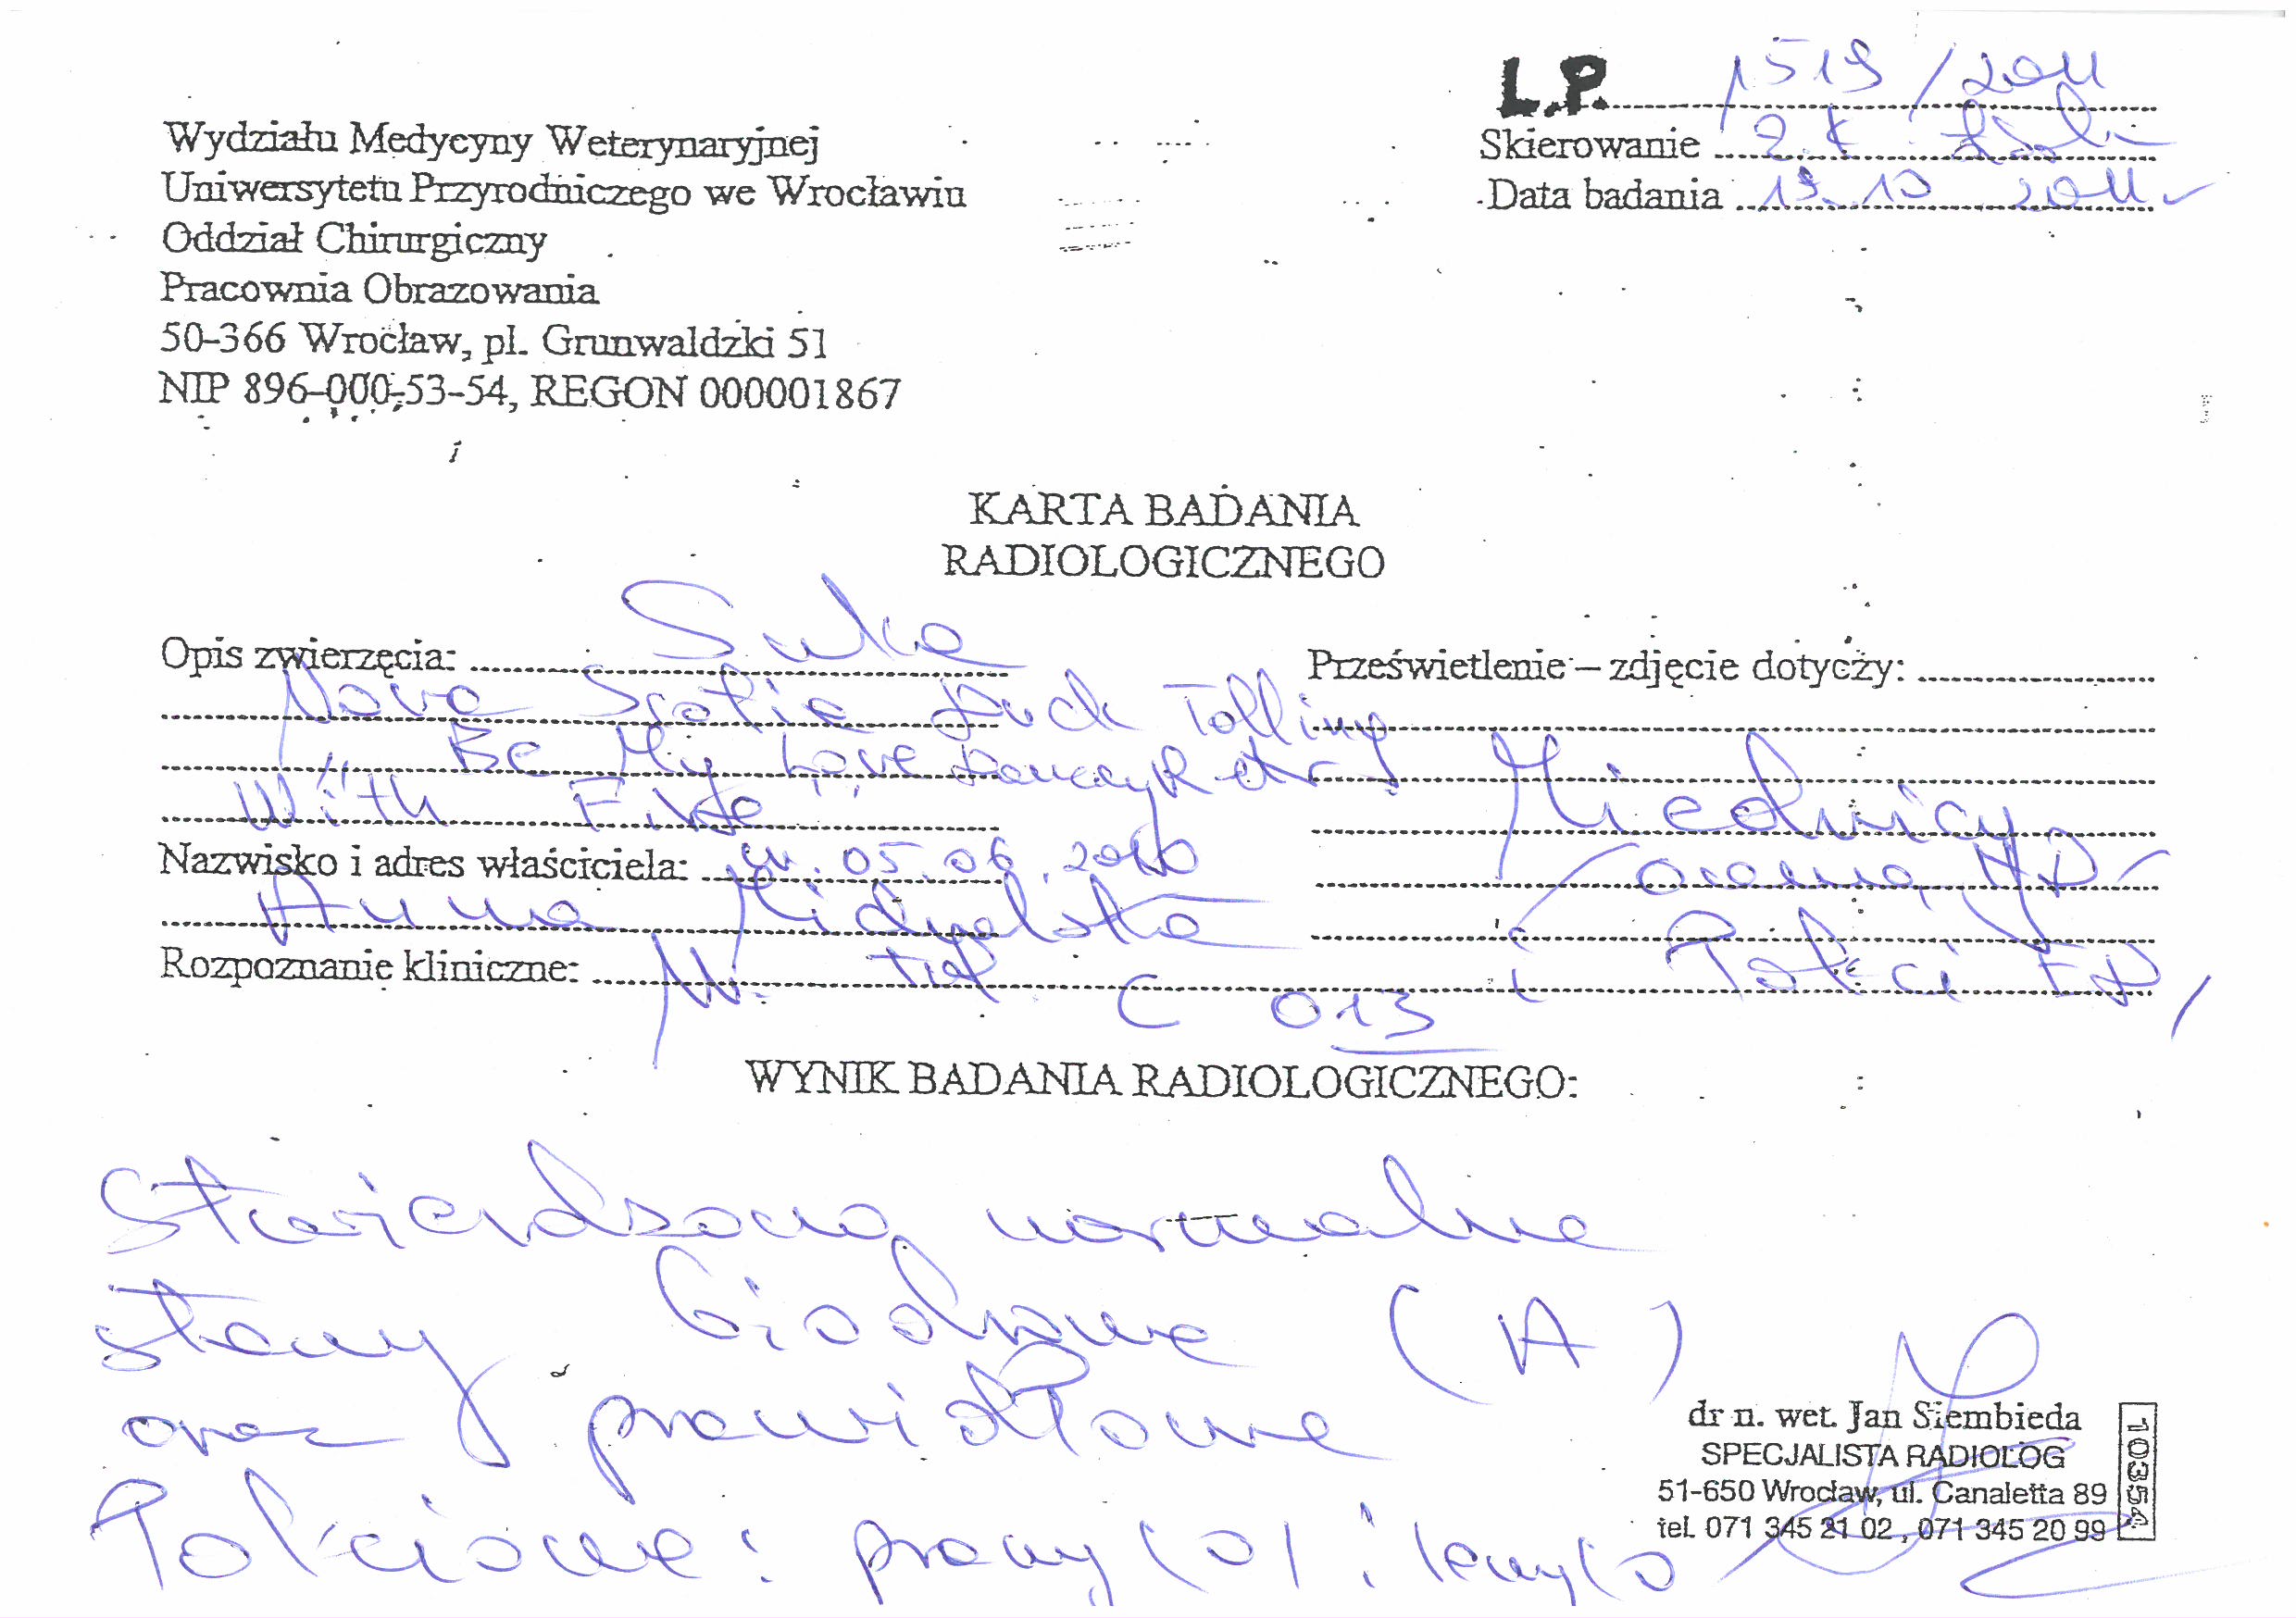 L.P. 1519/2011
Wydziału Medycyny Weterynaryjnej
Skierowanie
Uniwersytetu Przyrodniczego we Wrocławiu
Data badania 19.10 2011
Oddział Chirurgiczny
Pracownia Obrazowania
50-366 Wrocław, pl. Grunwaldzki 51
NIP 896-000-53-54, REGON 000001867
KARTA BADANIA
RADIOLOGICZNEGO
Opis zwierzęcia: Suka
Prześwietlenie – zdjęcie dotyczy:
Nova Scotia Duck Tolling
Be My Love
With Fire
Miednicy
Nazwisko i adres właściciela: ur. 05.06.2010
ocena HD
Anna
i łokci ED
Rozpoznanie kliniczne: Nr tat. C 013
WYNIK BADANIA RADIOLOGICZNEGO:
Stwierdzono normalne
stawy biodrowe (A)
oraz prawidłowe
łokciowe: prawy (0) i lewy (0
dr n. wet. Jan Siembieda
SPECJALISTA RADIOLOG
51-650 Wrocław, ul. Canaletta 89
tel. 071 345 21 02, 071 345 20 99
10354